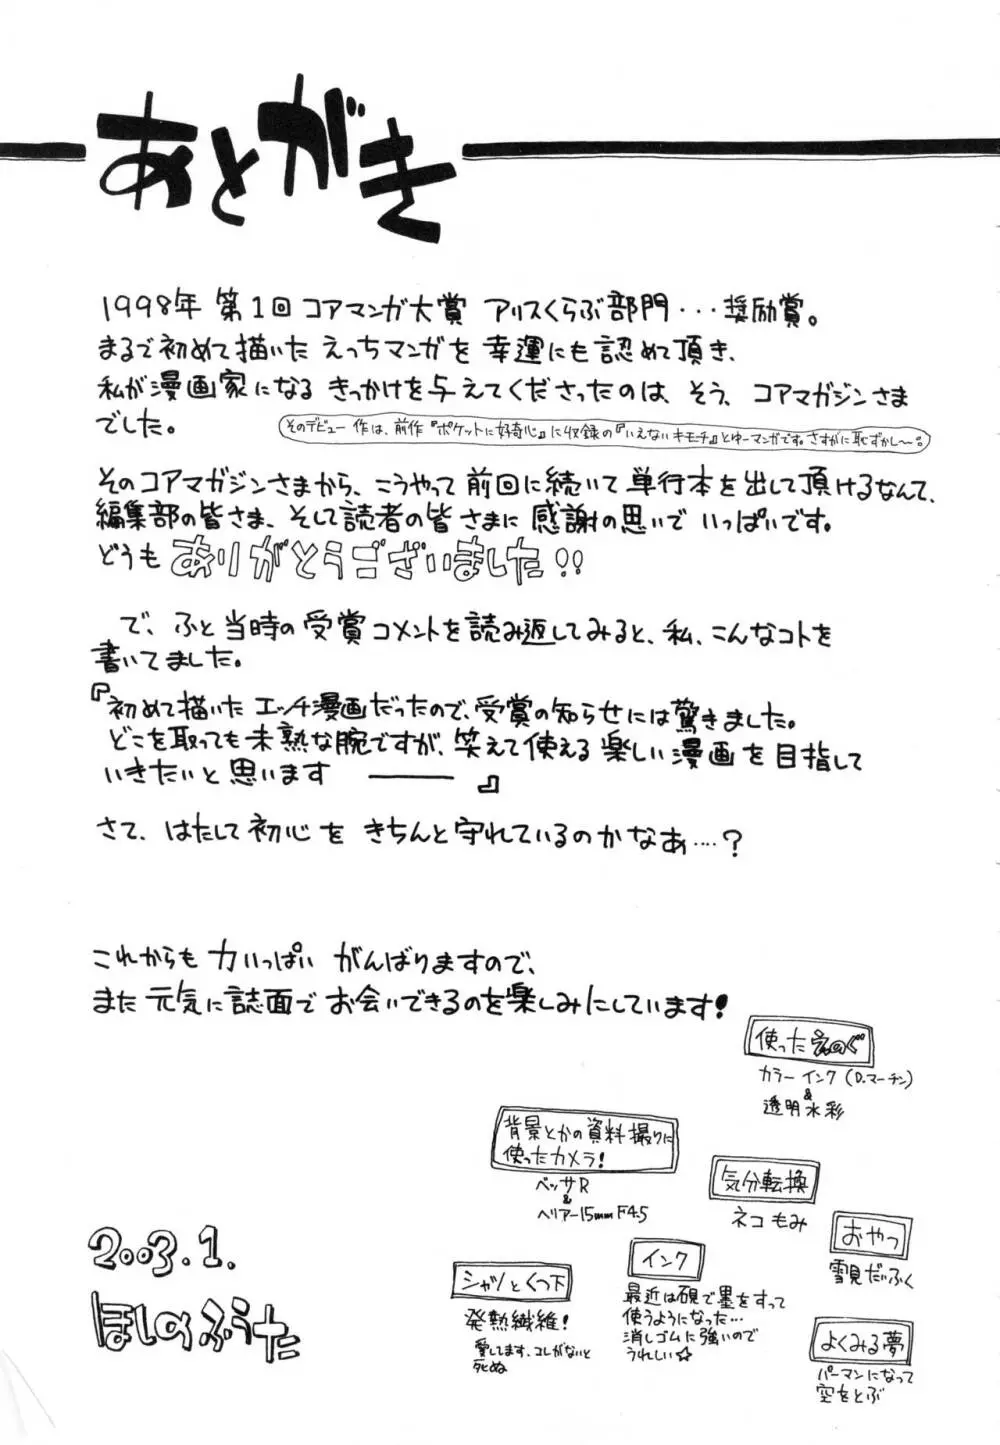 あとがき
1998年 第1回 コアマンガ大賞 アリスくらぶ部門・・・奨励賞。
まるで初めて描いた えっちマンガを 幸運にも認めて頂き、
私が漫画家になる きっかけを与えてくださったのは、そう、コアマガジンさま
でした。
そのデビュー作は、前作『ポケットに好奇心』に収録の『いえないキモ〜チ』とゆーマンガです。さすがに恥ずかし〜。
そのコアマガジンさまから、こうやって前回に続いて単行本を出して頂けるなんて、
編集部の皆さま、そして読者の皆さまに 感謝の思いで いっぱいです。
どうも ありがとうございました!!
で、ふと当時の受賞コメントを読み返してみると、私、こんなコトを
書いてました。
『初めて描いたエッチ漫画だったので、受賞の知らせには驚きました。
どこを取っても未熟な腕ですが、笑えて使える楽しい漫画を目指して
いきたいと思います ───』
さて、はたして初心を きちんと守れているのかなぁ‥‥?
これからも 力いっぱい がんばりますので、
また 元気に誌面で お会いできるのを楽しみにしています!
使ったえのぐ
カラーインク(D.マーチン)
&
透明水彩
背景とかの資料撮りに
使ったカメラ!
ベッサR
&
ヘリアー15mm F4.5
気分転換
ネコもみ
おやつ
雪見だいふく
インク
最近は硯で墨をすって
使うようになった…
消しゴムに強いので
うれしい☆
シャツとくつ下
発熱繊維!
愛してます、コレがないと
死ぬ
よくみる夢
パーマンになって
空をとぶ
2003.1.
ほしのふうた